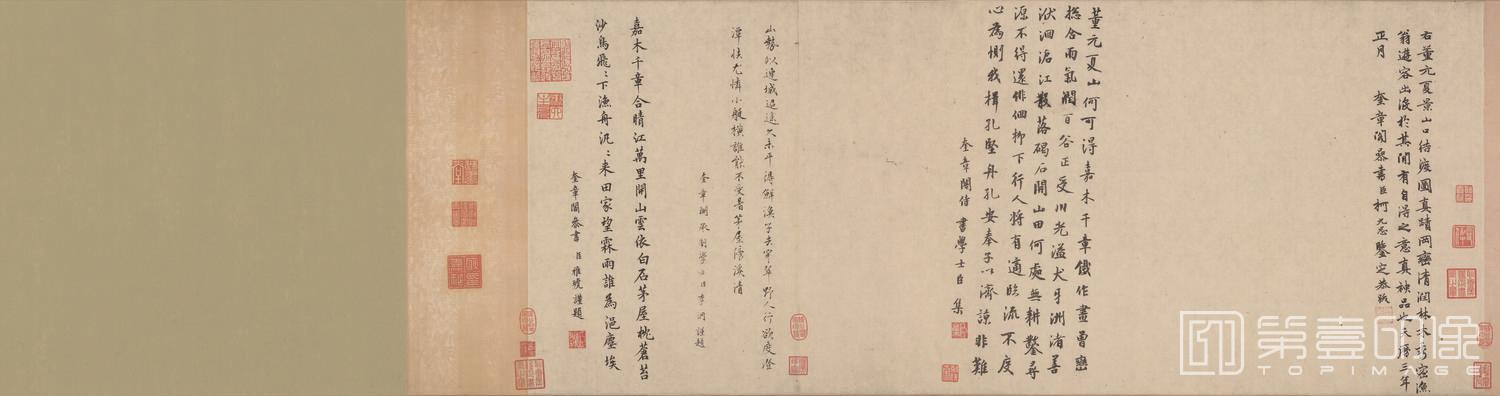 右董元夏景山口待渡圖真蹟岡巒清潤林木秀密漁
翁遊客出沒於其間有自得之意真神品也天曆三年
正月 奎章閣參書臣柯九思鑒定恭跋
董元夏山何可得嘉木千章儼作畫曾巒
總合雨氣潤百谷正受川光溢犬牙洲渚善
洑洄滄江散落碣石開山田何處無耕鑿尋
源不得還俳佪柳下行人將有適臨流不度
心為惻我楫孔堅舟孔安奉子以濟諒非難
奎章閣侍書學士臣集
山勢似連城迢遙久未平得鮮漁子去
野人行欲度澄
潭快尤憐小艇橫誰能不受暑茅屋傍溪清
奎章閣承制學士臣李泂謹題
嘉木千章合晴江萬里開山雲依白石茅屋枕蒼苔
沙鳥飛飛下漁舟汎汎来田家望霖雨誰為浥塵埃
奎章閣參書臣雅琥謹題
第壹印像
TOPIMAGE